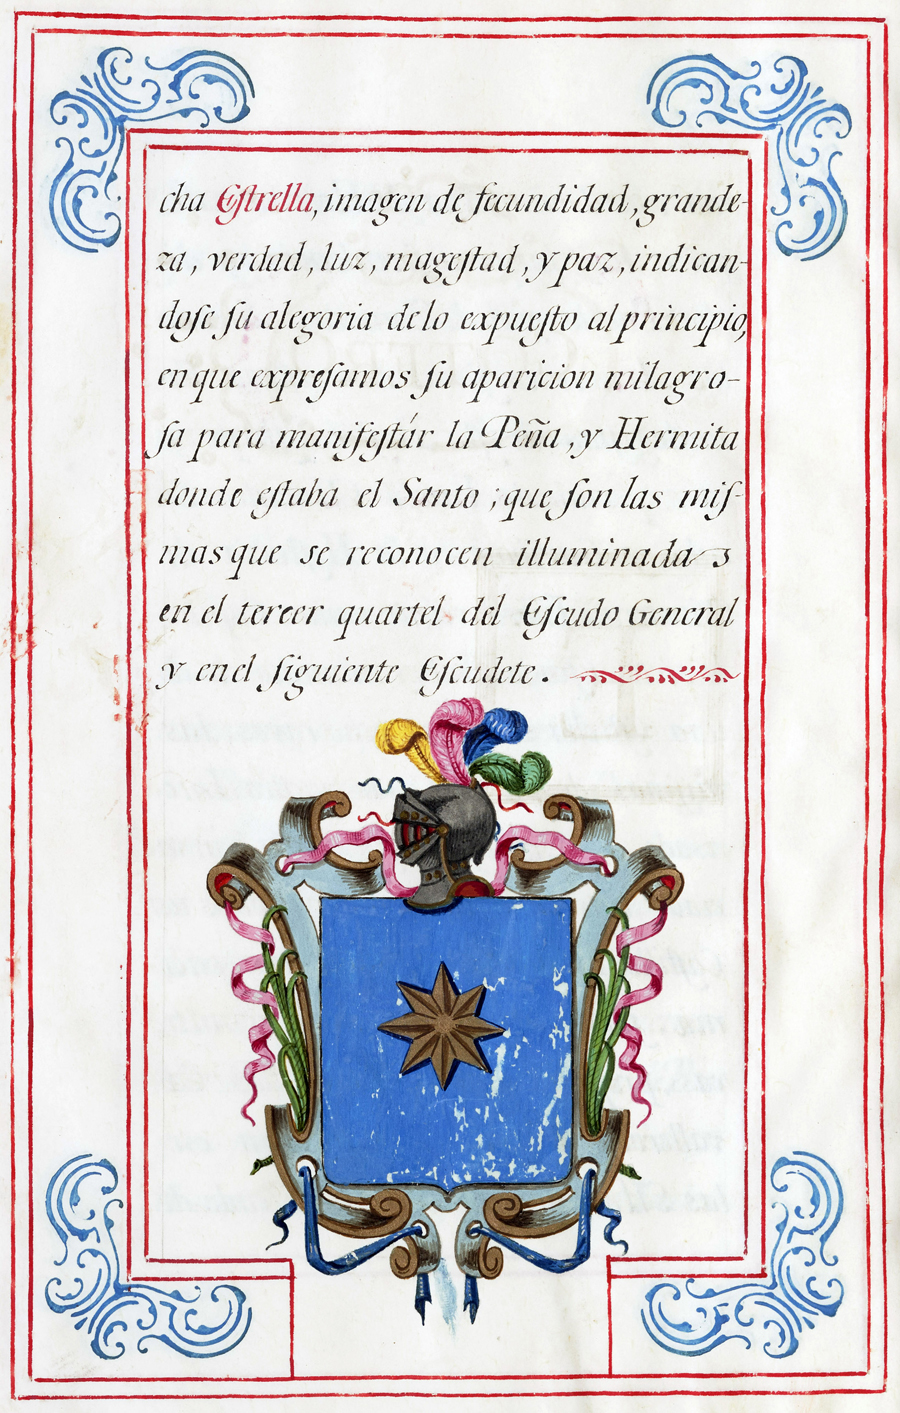 cha Estrella, imagen de fecundidad, grande-
za, verdad, luz, magestad, y paz, indican-
dose su alegoria delo expuesto al principio,
en que expresamos su aparicion milagro-
sa para manifestár la Peña, y Hermita
donde estaba el Santo; que son las mis-
mas que se reconocen illuminadas
en el tercer quartel del Escudo General
y en el siguiente Escudete.